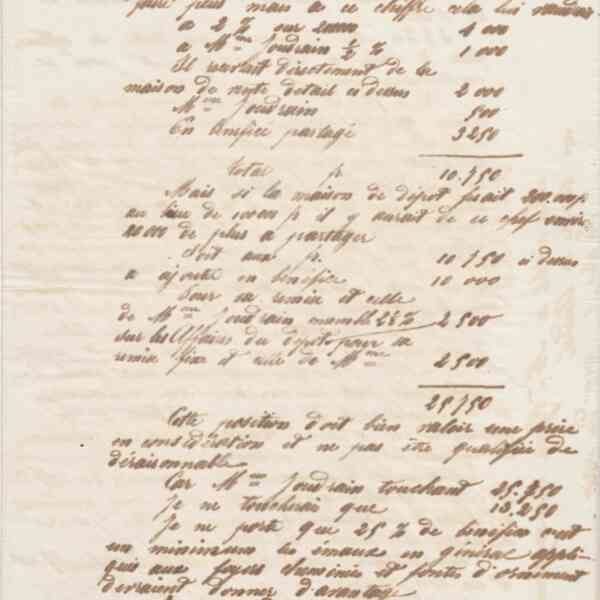 plus mais à ce chiffre cela lui
à 2 % sur 4 000
à Mme Joudrain ½ % 1 000
Il recevrait directement de la
maison de vente détail ci dessus 2 000
Mme Joudrain 500
En bénéfice partagé 3250
total f. 10.750
Mais si la maison de dépot fesait 200.000 f.
au lieu de 100 000 f. il y aurait de ce chef
10 000 de plus à partager
Soit aux f. 10 750 ci dessus
à ajouter en bénéfice 10 000
Pour sa remise et celle
de Mme Joudrain ensemble 2½ % 2 500
sur les affaires du dépot pour sa
remise fixe et celle de Mme 2500
25750
Cette position doit bien valoir une prise
en considération et ne pas être qualifiée de
déraisonnable
Car Mme Joudrain touchant 25.750
Je ne toucherais que 13.250
Je ne porte que 25 % de bénéfice
un minimum les émaux en général appli-
qués aux foyers cheminées et fontes d'ornement
devraient donner d'avantage